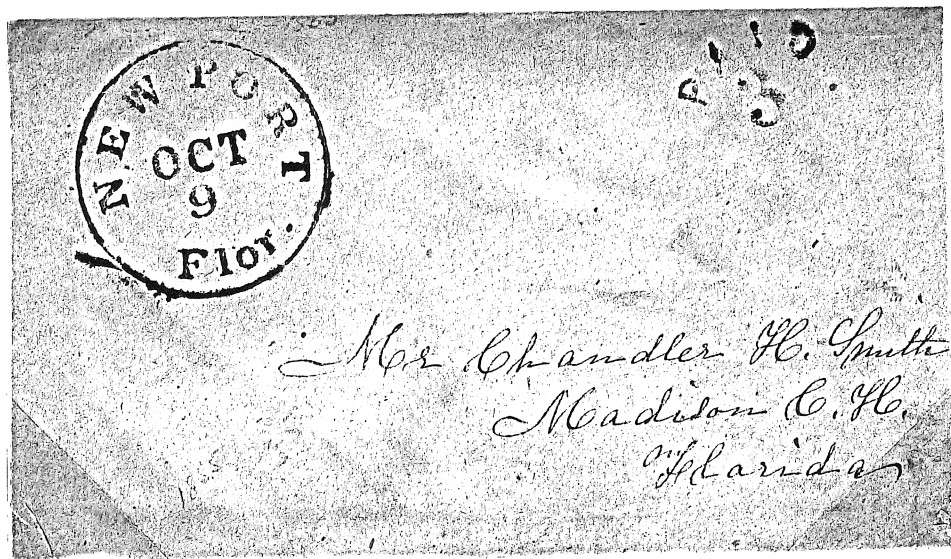 NEW PORT
OCT
9
Flor.
PAID
3
Mr Chandler H. Smith
Madison C. H.
Florida